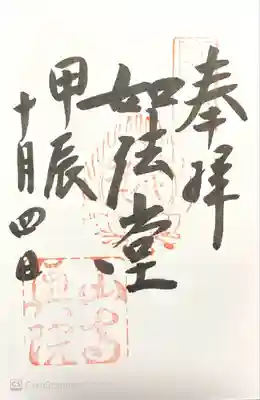 奉拝
如法堂
甲辰
十月四日
CS CamScanner